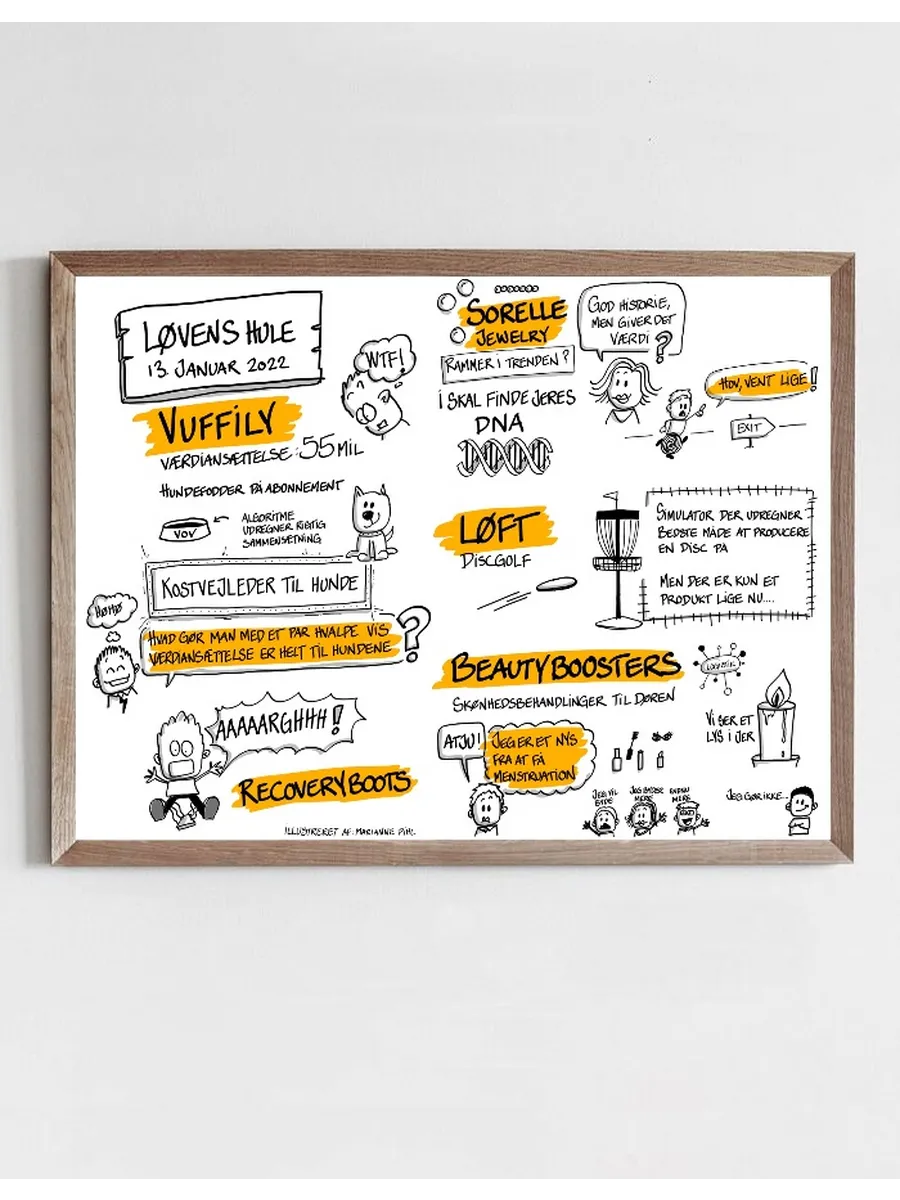 LØVENS HULE
13. JANUAR 2022
WTF!
VUFFILY
VÆRDIANSÆTTELSE: 55 MIL
HUNDEFODDER PÅ ABONNEMENT
VOV
ALGORITME
UDREGNER RIGTIG
SAMMENSÆTNING
KOSTVEJLEDER TIL HUNDE
HØHØ
HVAD GØR MAN MED ET PAR HVALPE VIS
VÆRDIANSÆTTELSE ER HELT TIL HUNDENE ?
AAAAARGHHH!
RECOVERYBOOTS
ILLUSTRERET AF: MARIANNE PIHL
SORELLE
JEWELRY
RAMMER I TRENDEN?
I SKAL FINDE JERES
DNA
GOD HISTORIE,
MEN GIVER DET
VÆRDI ?
HOV, VENT LIGE!
EXIT
LØFT
DISCGOLF
SIMULATOR DER UDREGNER
BEDSTE MÅDE AT PRODUCERE
EN DISC PÅ
MEN DER ER KUN ET
PRODUKT LIGE NU....
BEAUTYBOOSTERS
LOGISTIK
SKØNHEDSBEHANDLINGER TIL DØREN
ATJU!
JEG ER ET NYS
FRA AT FÅ
MENSTRUATION
VI SER ET
LYS I JER
JEG VIL
BYDE
JEG BYDER
MERE
ENDNU
MERE
JEG GØR IKKE...